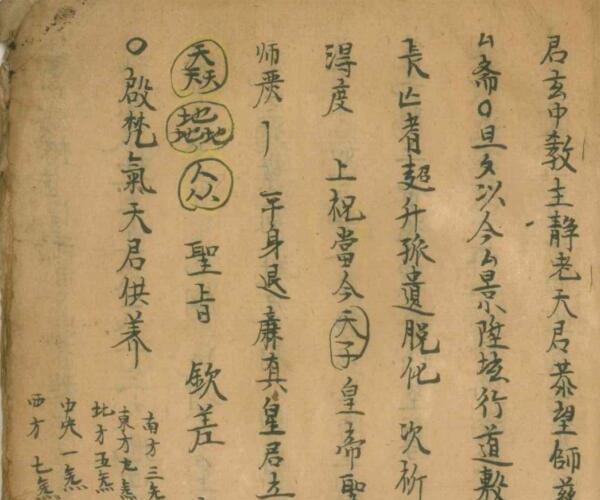 君玄中教主静老天君恭望師慈
厶斋〇旦夕以今厶景陞坛行道敷
長亡者超升孤遺脱化 次祈
得度 上祝當今天子皇帝聖
师 平身退廉真皇君立
天天天 地地地 众 聖旨 欽差
〇啟梵氣天君供养
南方三炁
東方九炁
北方五炁
中央一炁
西方七炁